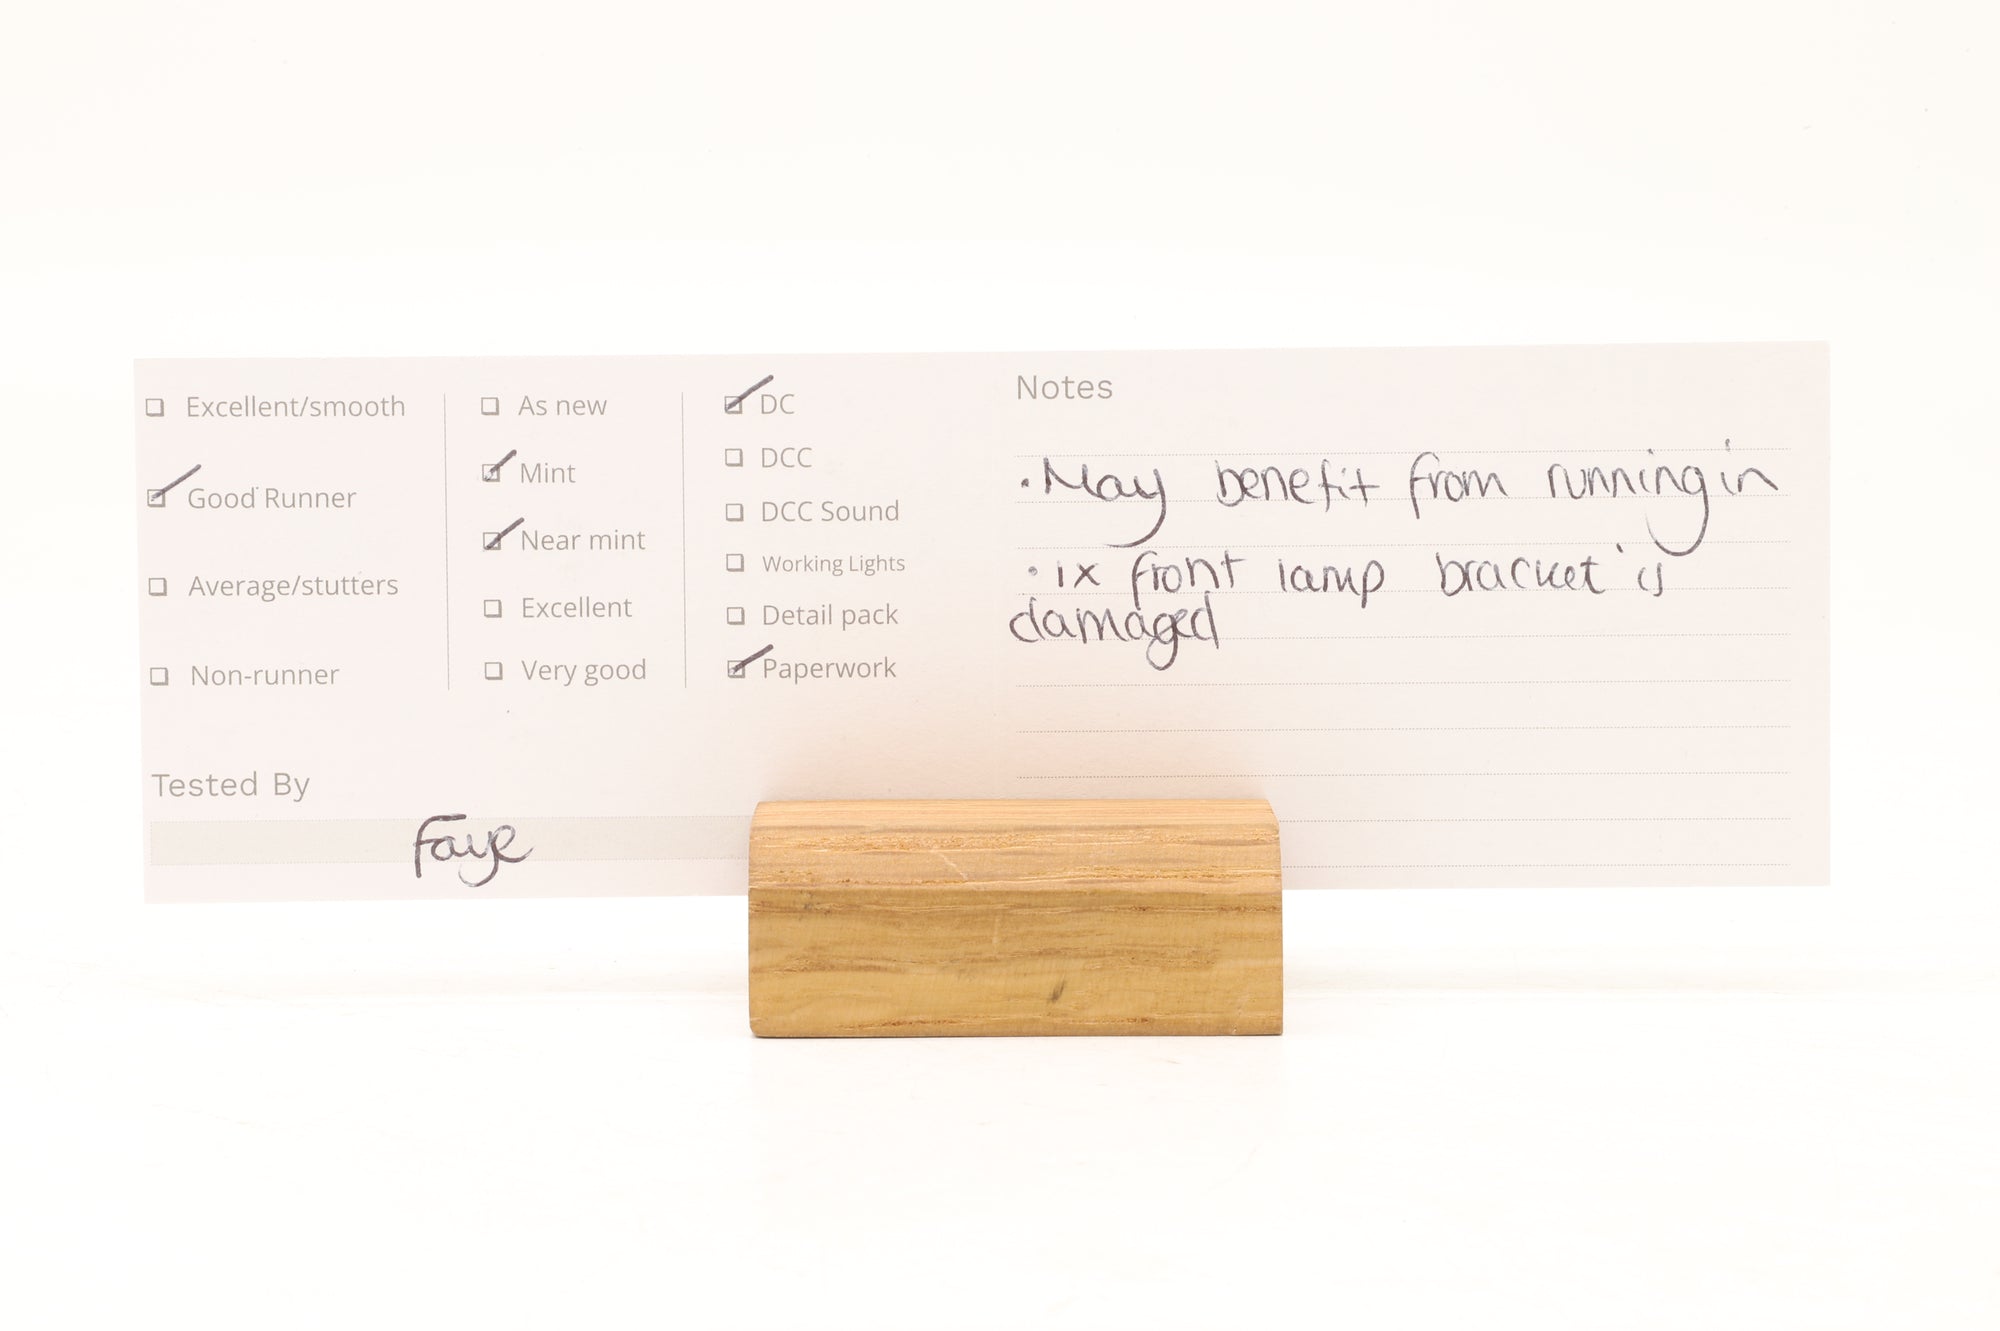 ☐ Excellent/smooth
☑ Good Runner
☐ Average/stutters
☐ Non-runner
☐ As new
☑ Mint
☑ Near mint
☐ Excellent
☐ Very good
☑ DC
☐ DCC
☐ DCC Sound
☐ Working Lights
☐ Detail pack
☑ Paperwork
Tested By
Faye
Notes
• May benefit from running in
• 1x front lamp bracket is
damaged